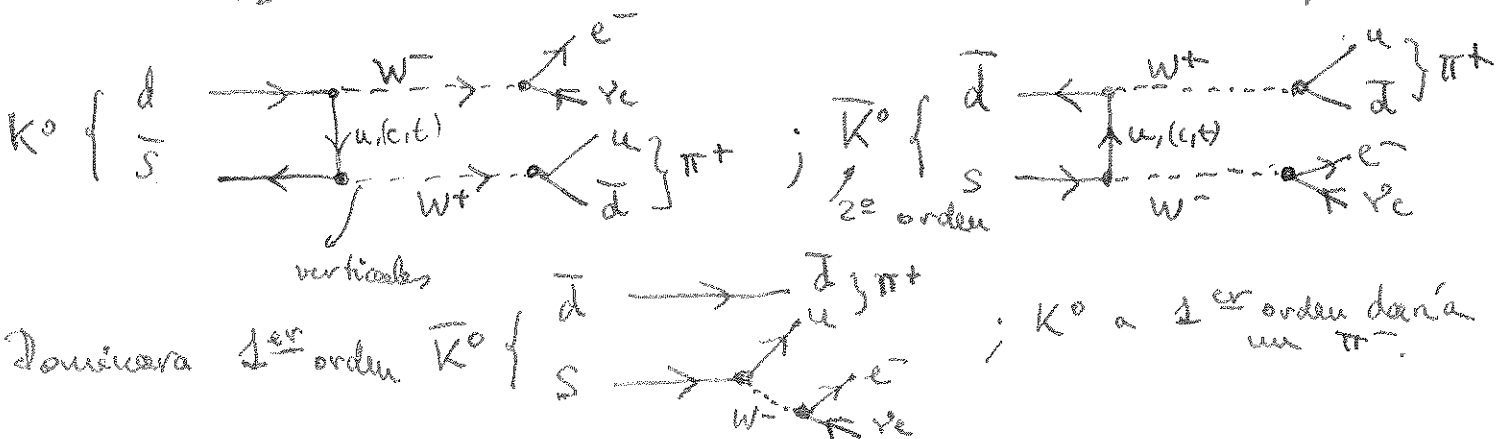 K⁰ { d W⁻ e⁻ νe
s̄ u,(c,t) W⁺ u d̄ } π⁺ ;
K̄⁰ { d̄ W⁺ u d̄ } π⁺
s u,(c,t) W⁻ e⁻ νe
2º orden
verticales
Dominara 1er orden K̄⁰ { d̄ d̄ } π⁺ u
s W⁻ e⁻ νe
; K⁰ a 1er orden daría
un π⁻.